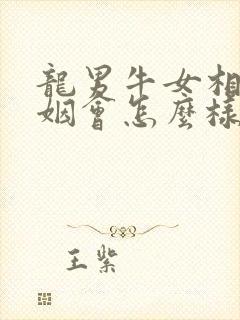 龍男牛女相
姻會怎麼樣
王紫